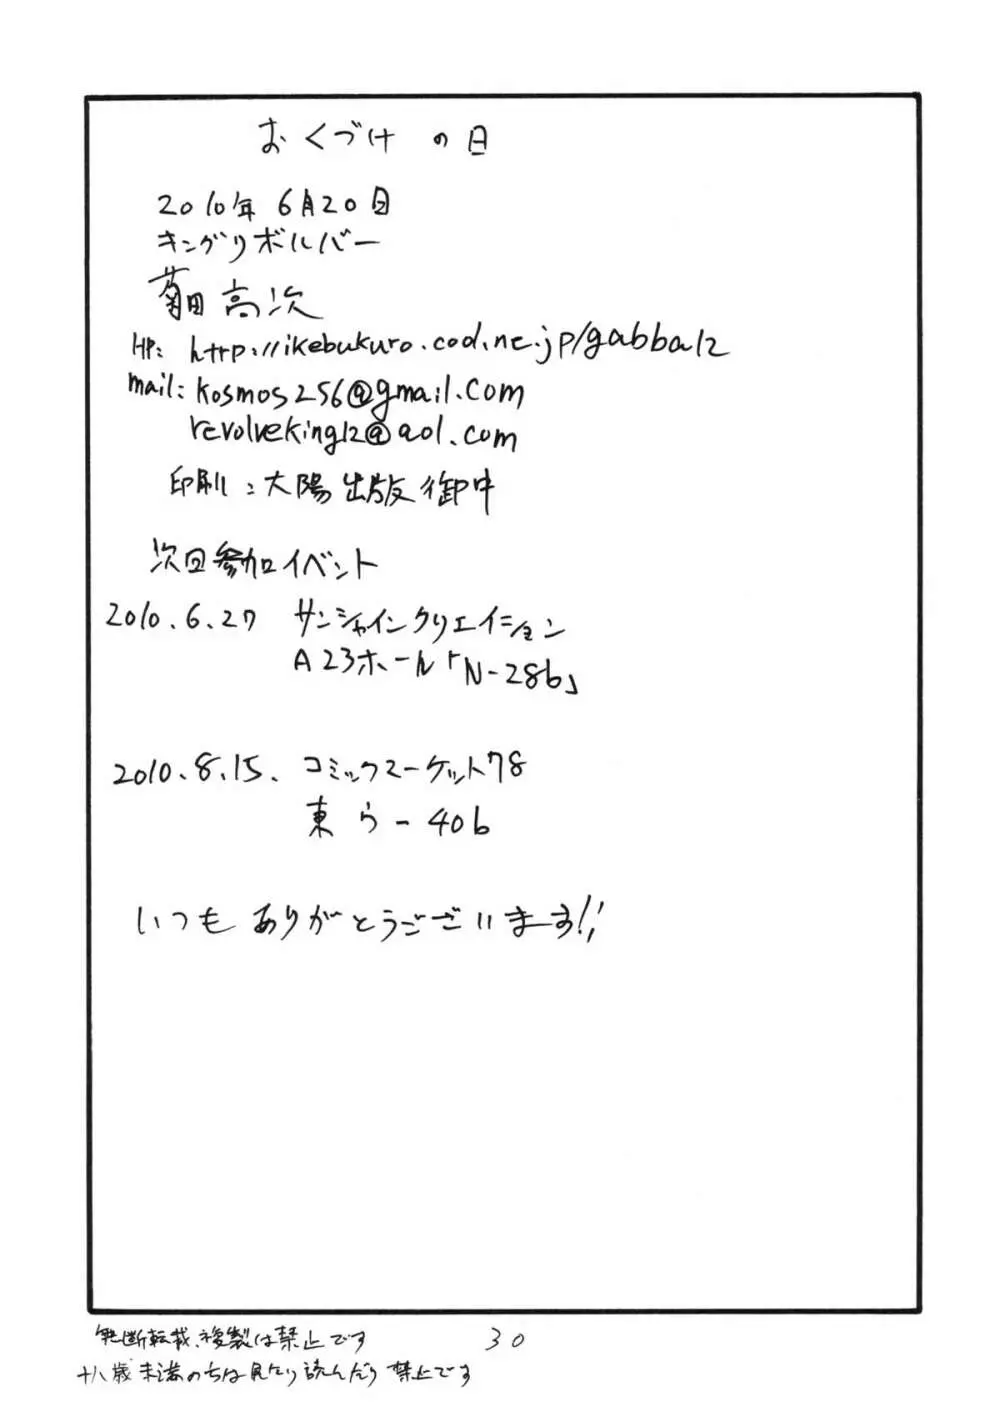 おくづけの日
2010年 6月20日
キングリボルバー
菊田 高次
HP: http://ikebukuro.cool.ne.jp/gabba12
mail: kosmos256@gmail.com
revolveking12@aol.com
印刷:大陽出版御中
次回参加イベント
2010.6.27 サンシャインクリエイション
A23ホール「N-28b」
2010.8.15. コミックマーケット78
東 う-40b
いつもありがとうございます!!
無断転載、複製は禁止です
30
十八歳未満のちは見たり読んだり禁止です